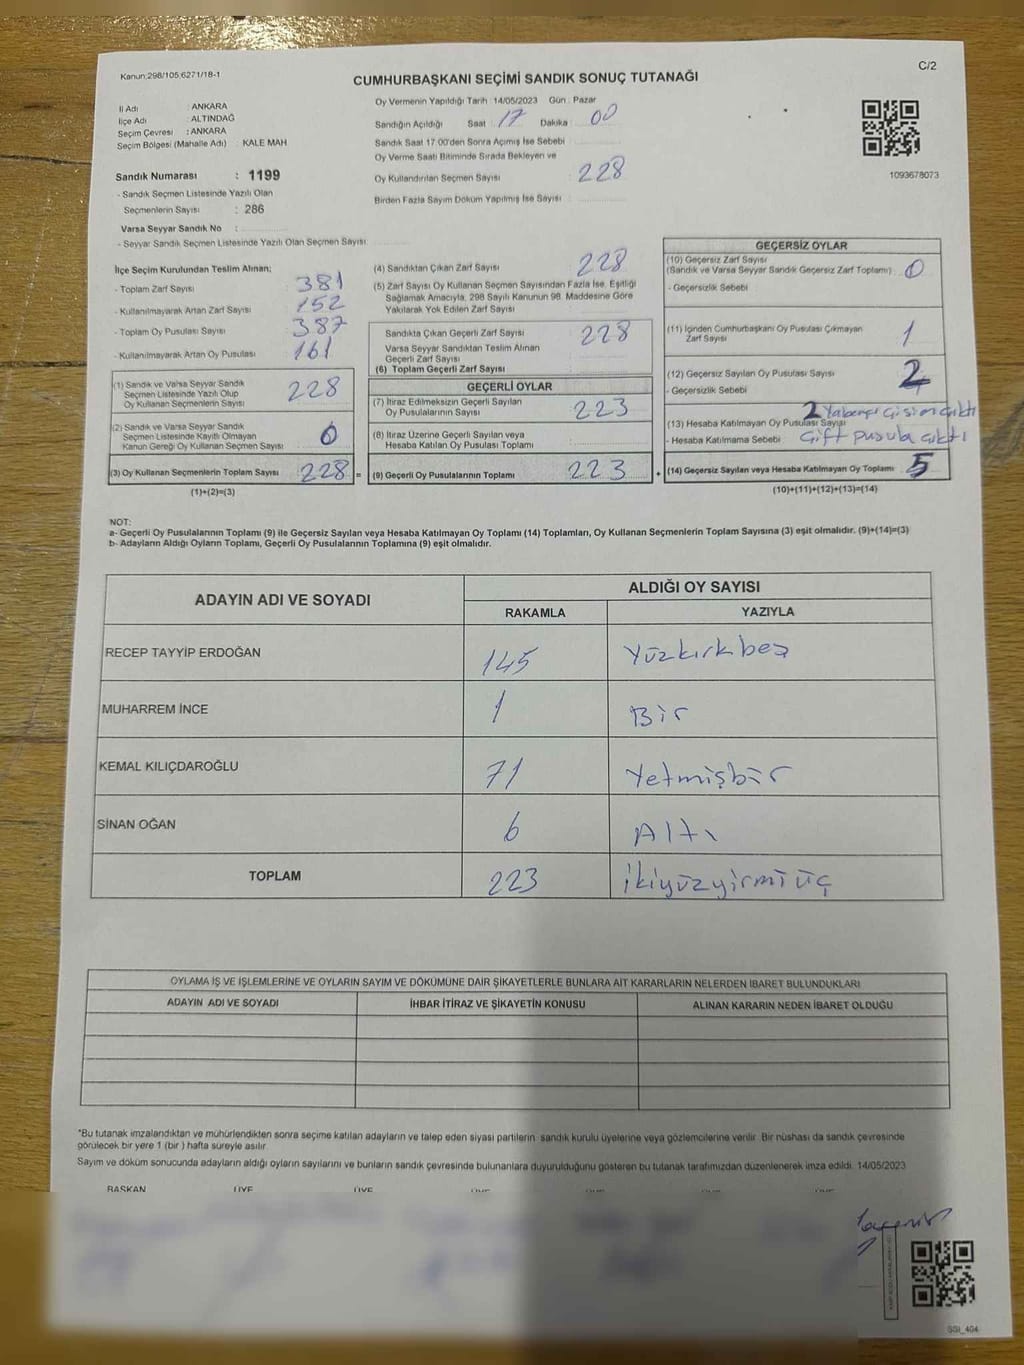 Kanun:298/105.6271/18-1
C/2
CUMHURBAŞKANI SEÇİMİ SANDIK SONUÇ TUTANAĞI
İl Adı : ANKARA
İlçe Adı : ALTINDAĞ
Seçim Çevresi : ANKARA
Seçim Bölgesi (Mahalle Adı) KALE MAH
Sandık Numarası : 1199
- Sandık Seçmen Listesinde Yazılı Olan
Seçmenlerin Sayısı : 286
Varsa Seyyar Sandık No :
- Seyyar Sandık Seçmen Listesinde Yazılı Olan Seçmen Sayısı
Oy Vermenin Yapıldığı Tarih :14/05/2023 Gün : Pazar
Sandığın Açıldığı Saat : 17 Dakika : 00
Sandık Saat 17:00'den Sonra Açımış İse Sebebi :
Oy Verme Saati Bitiminde Sırada Bekleyen ve
Oy Kullandırılan Seçmen Sayısı : 228
Birden Fazla Sayım Döküm Yapılmış İse Sayısı :
1093678073
İlçe Seçim Kurulundan Teslim Alınan;
- Toplam Zarf Sayısı : 381
- Kullanılmayarak Artan Zarf Sayısı : 152
- Toplam Oy Pusulası Sayısı : 387
- Kullanılmayarak Artan Oy Pusulası : 161
(1) Sandık ve Varsa Seyyar Sandık
Seçmen Listesinde Yazılı Olup
Oy Kullanan Seçmenlerin Sayısı : 228
(2) Sandık ve Varsa Seyyar Sandık
Seçmen Listesinde Kayıtlı Olmayan
Kanun Gereği Oy Kullanan Seçmen Sayısı : 0
(3) Oy Kullanan Seçmenlerin Toplam Sayısı : 228 =
(1)+(2)=(3)
(4) Sandıktan Çıkan Zarf Sayısı : 228
(5) Zarf Sayısı Oy Kullanan Seçmen Sayısından Fazla İse, Eşitliği
Sağlamak Amacıyla, 298 Sayılı Kanunun 98. Maddesine Göre
Yakılarak Yok Edilen Zarf Sayısı
Sandıkta Çıkan Geçerli Zarf Sayısı : 228
Varsa Seyyar Sandıktan Teslim Alınan
Geçerli Zarf Sayısı
(6) Toplam Geçerli Zarf Sayısı
GEÇERLİ OYLAR
(7) İtiraz Edilmeksizin Geçerli Sayılan
Oy Pusulalarının Sayısı : 223
(8) İtiraz Üzerine Geçerli Sayılan veya
Hesaba Katılan Oy Pusulası Toplamı :
(9) Geçerli Oy Pusulalarının Toplamı : 223 +
GEÇERSİZ OYLAR
(10) Geçersiz Zarf Sayısı
(Sandık ve Varsa Seyyar Sandık Geçersiz Zarf Toplamı) : 0
- Geçersizlik Sebebi
(11) İçinden Cumhurbaşkanı Oy Pusulası Çıkmayan
Zarf Sayısı : 1
(12) Geçersiz Sayılan Oy Pusulası Sayısı : 2
- Geçersizlik Sebebi
(13) Hesaba Katılmayan Oy Pusulası Sayısı 2
- Hesaba Katılmama Sebebi çift pusula çıktı
(14) Geçersiz Sayılan veya Hesaba Katılmayan Oy Toplamı : 5
(10)+(11)+(12)+(13)=(14)
NOT:
a- Geçerli Oy Pusulalarının Toplamı (9) ile Geçersiz Sayılan veya Hesaba Katılmayan Oy Toplamı (14) Toplamları, Oy Kullanan Seçmenlerin Toplam Sayısına (3) eşit olmalıdır. (9)+(14)=(3)
b- Adayların Aldığı Oyların Toplamı, Geçerli Oy Pusulalarının Toplamına (9) eşit olmalıdır.
ADAYIN ADI VE SOYADI
ALDIĞI OY SAYISI
RAKAMLA YAZIYLA
RECEP TAYYİP ERDOĞAN 145 Yüzkırkbeş
MUHARREM İNCE 1 Bir
KEMAL KILIÇDAROĞLU 71 Yetmişbir
SİNAN OĞAN 6 Altı
TOPLAM 223 ikiyüzyirmiüç
OYLAMA İŞ VE İŞLEMLERİNE VE OYLARIN SAYIM VE DÖKÜMÜNE DAİR ŞİKAYETLERLE BUNLARA AİT KARARLARIN NELERDEN İBARET BULUNDUKLARI
ADAYIN ADI VE SOYADI İHBAR İTİRAZ VE ŞİKAYETİN KONUSU ALINAN KARARIN NEDEN İBARET OLDUĞU
*Bu tutanak imzalandıktan ve mühürlendikten sonra seçime katılan adayların ve talep eden siyasi partilerin sandık kurulu üyelerine veya gözlemcilerine verilir. Bir nüshası da sandık çevresinde
görülecek bir yere 1 (bir) hafta süreyle asılır.
Sayım ve döküm sonucunda adayların aldığı oyların sayılarını ve bunların sandık çevresinde bulunanlara duyurulduğunu gösteren bu tutanak tarafımızdan düzenlenerek imza edildi. 14/05/2023
BAŞKAN ÜYE ÜYE ÜYE ÜYE ÜYE ÜYE
SSI_404